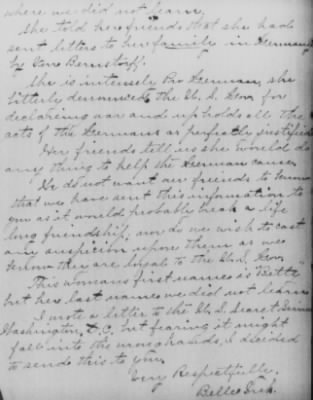 where we did not learn.
She told her friends that she had
sent letters to her family in Germany
by Von Bernstorf.
She is intensely Pro German, she
bitterly denounced the U. S. Gov. for
declaring war and upholds all the
acts of the Germans as perfectly justified
Her friends tell us she would do
any thing to help the German cause.
We do not want our friends to know
that we have sent this information to
you as it would probably break a life
long friendship, nor do we wish to cast
any suspicion upon them as we
know they are loyal to the U.S. Gov.
This womans first names is "Bettie"
but her last name we did not learn
I wrote a letter to the U. S. Secret Service
Washington, D.C. but fearing it might
fall into the wrong hands, I decided
to sends this to you.
Very Respectfully,
Belle